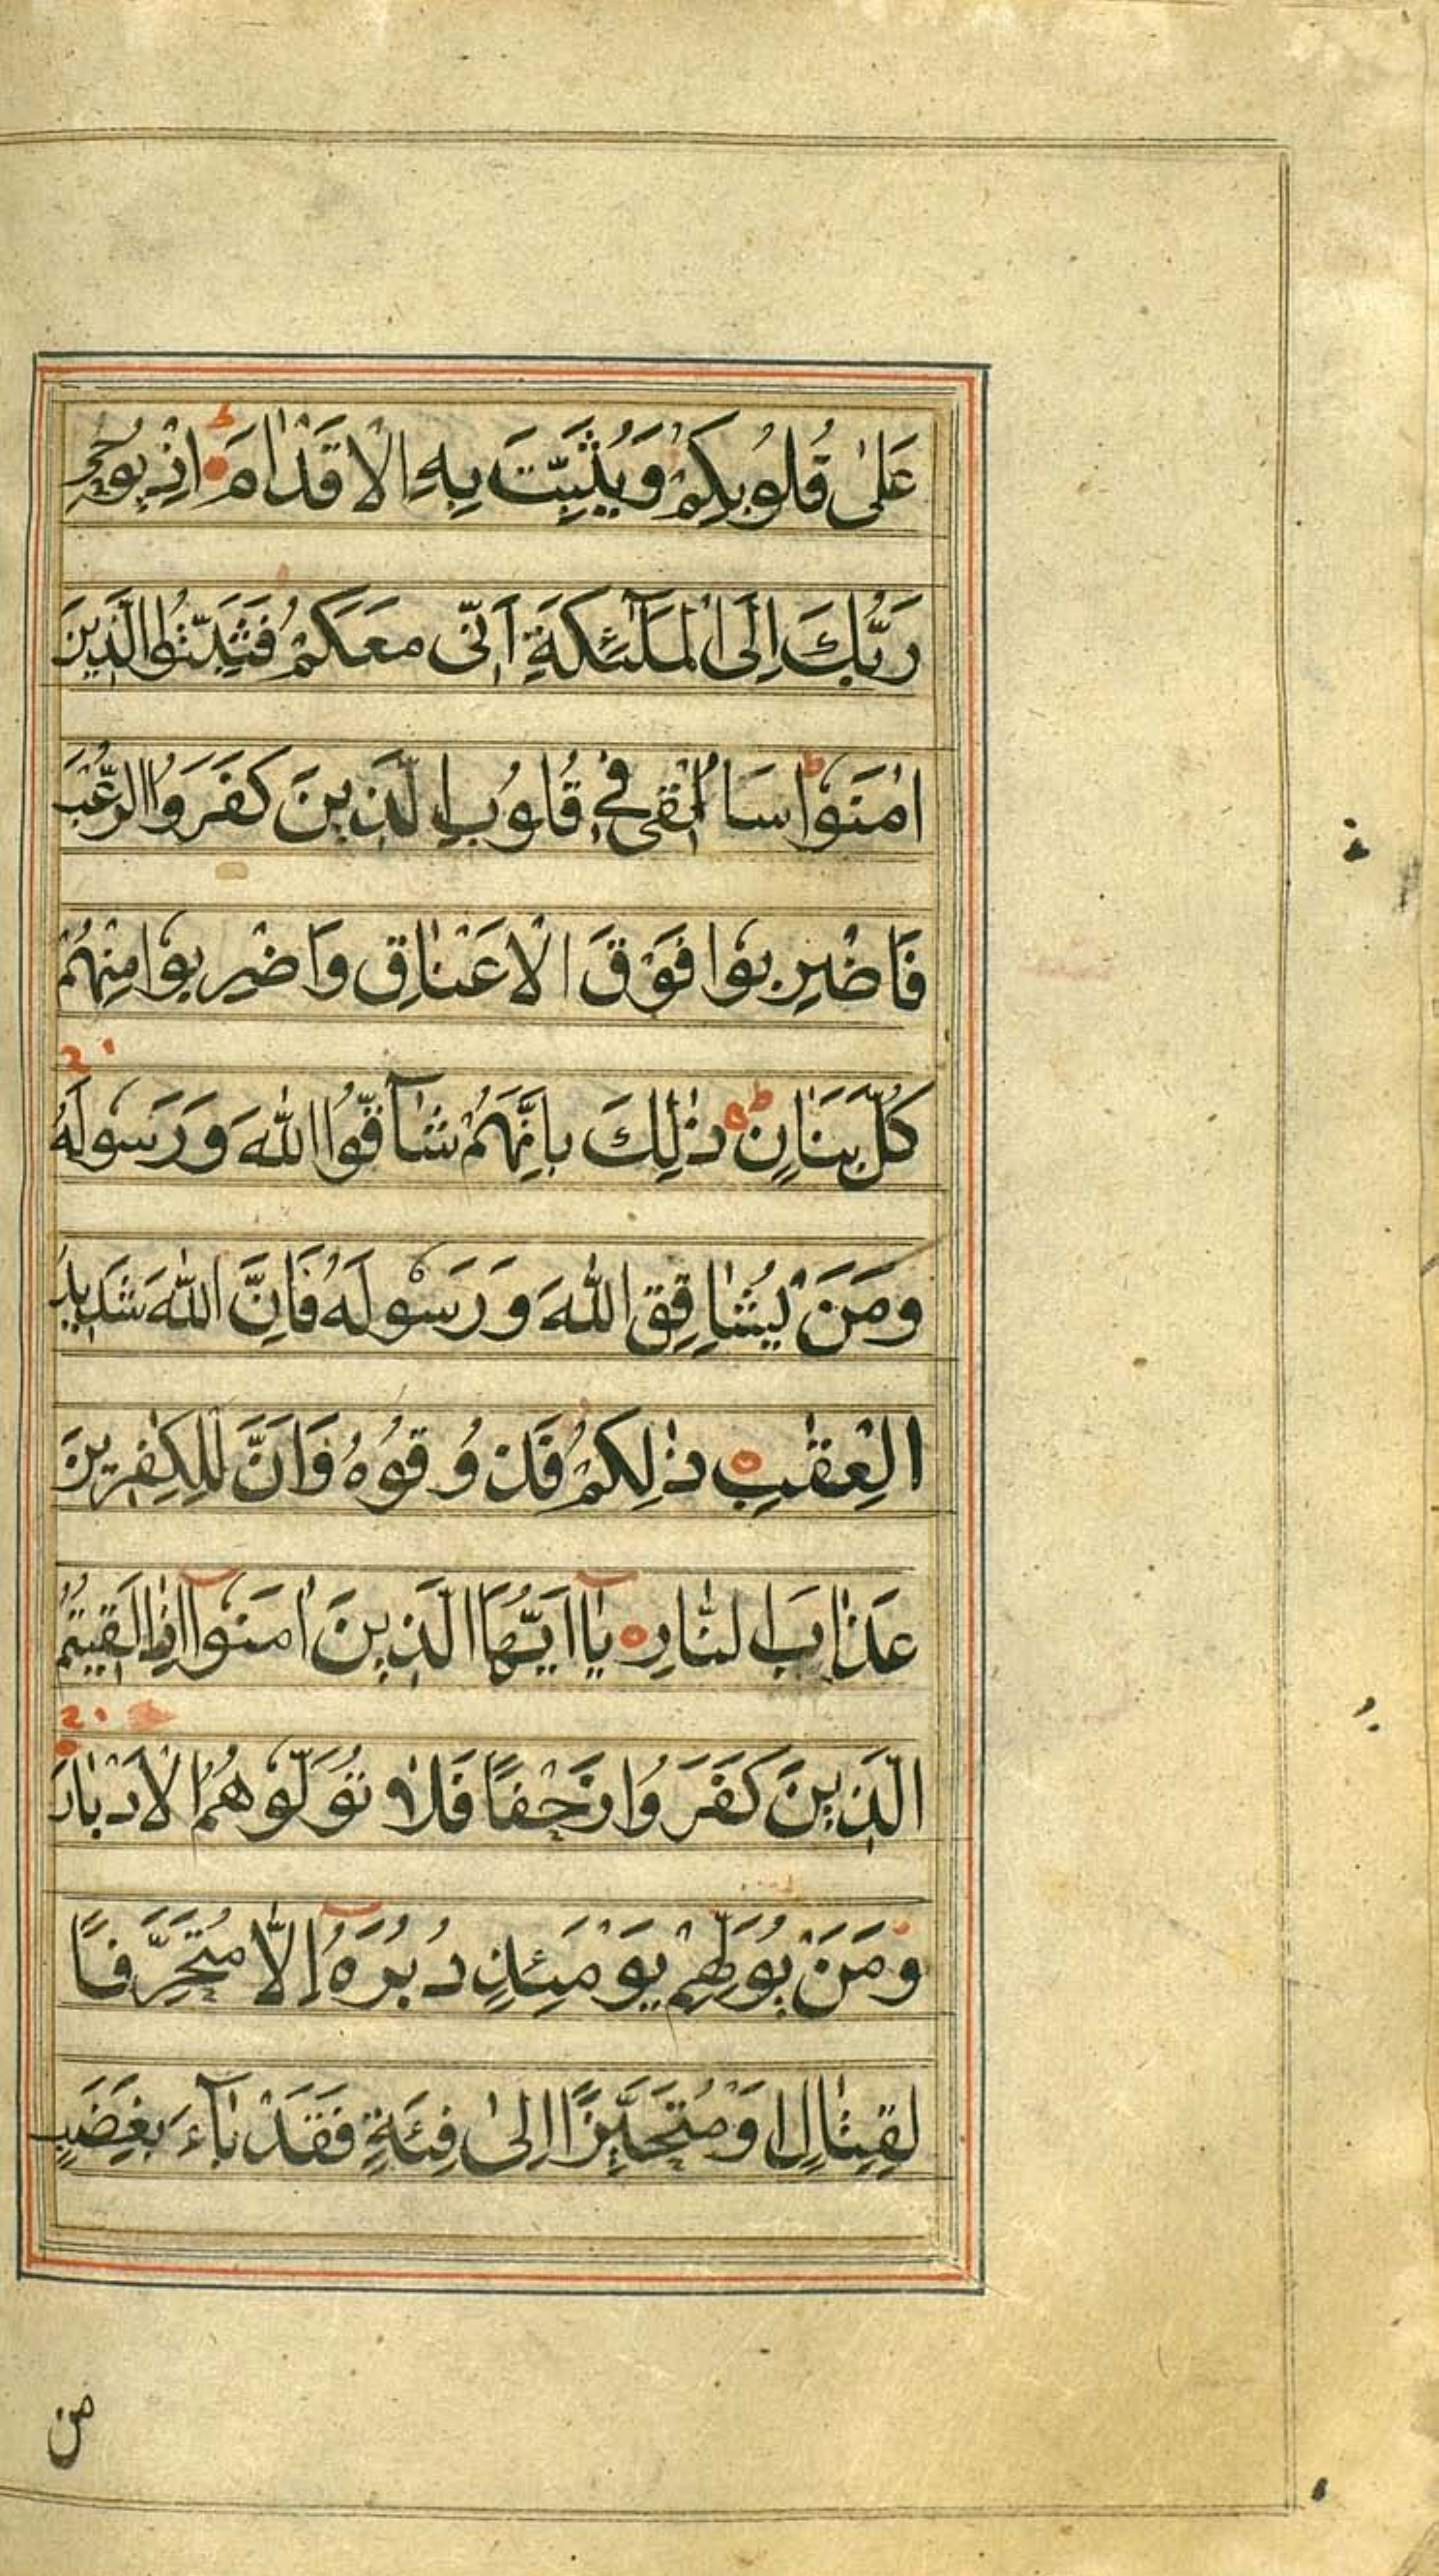 عَلٰى قُلُوْبِكُمْ وَيُثَبِّتَ بِهِ الْاَقْدَامَ اِذْ يُوْحِىْ
رَبُّكَ اِلَى الْمَلٰٓئِكَةِ اَنِّى مَعَكُمْ فَثَبِّتُوا الَّذِيْنَ
اٰمَنُوْا سَاُلْقِىْ فِىْ قُلُوْبِ الَّذِيْنَ كَفَرُوا الرُّعْبَ
فَاضْرِبُوْا فَوْقَ الْاَعْنَاقِ وَاضْرِبُوْا مِنْهُمْ
كُلَّ بَنَانٍ ذٰلِكَ بِاَنَّهُمْ شَآقُّوا اللّٰهَ وَرَسُوْلَهٗ
وَمَنْ يُّشَاقِقِ اللّٰهَ وَرَسُوْلَهٗ فَاِنَّ اللّٰهَ شَدِيْدُ
الْعِقٰبِ ذٰلِكُمْ فَذُوْقُوْهُ وَاَنَّ لِلْكٰفِرِيْنَ
عَذَابَ النَّارِ يٰٓااَيُّهَا الَّذِيْنَ اٰمَنُوْٓا اِذَا لَقِيْتُمُ
الَّذِيْنَ كَفَرُوْا زَحْفًا فَلَا تُوَلُّوْهُمُ الْاَدْبَارَ
وَمَنْ يُّوَلِّهِمْ يَوْمَئِذٍ دُبُرَهٗٓ اِلَّا مُتَحَرِّفًا
لِّقِتَالٍ اَوْ مُتَحَيِّزًا اِلٰى فِئَةٍ فَقَدْ بَآءَ بِغَضَبٍ
من